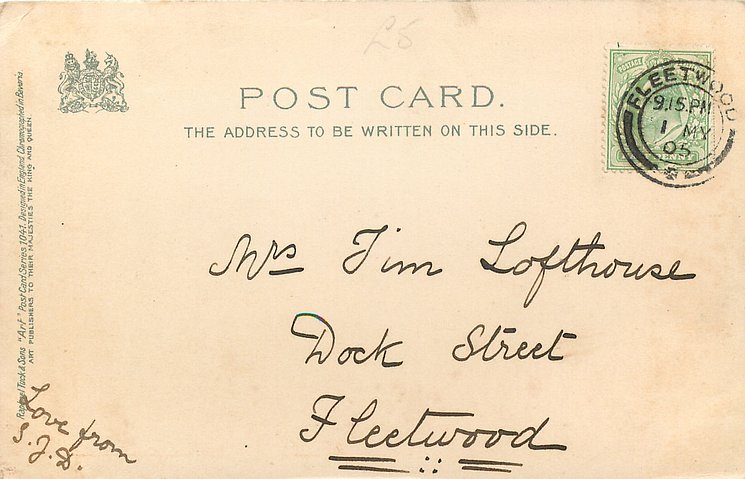 £5
POST CARD.
THE ADDRESS TO BE WRITTEN ON THIS SIDE.
FLEETWOOD
9.15 PM
1 MY
05
Mrs Jim Lofthouse
Dock Street
Fleetwood
Raphael Tuck & Sons "Art" Post Card Series 1041. Designed in England. Chromographed in Bavaria.
ART PUBLISHERS TO THEIR MAJESTIES THE KING AND QUEEN
Love from
S. J. D.